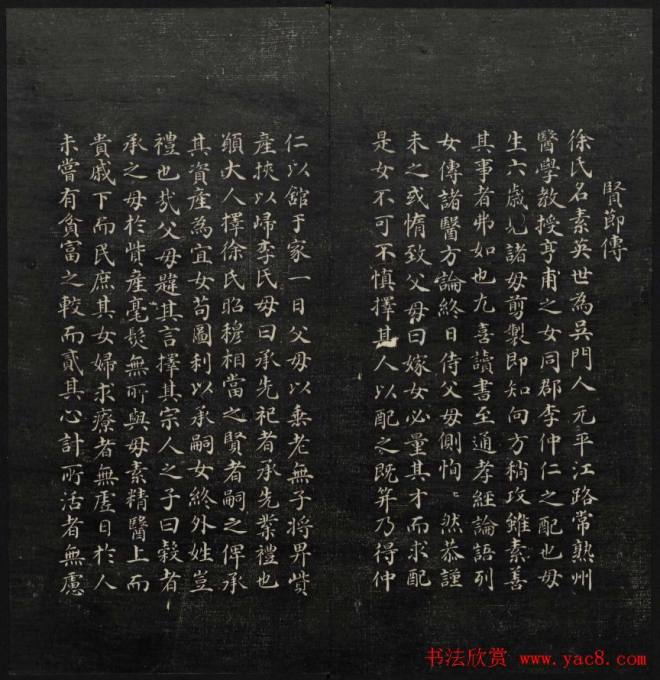 賢節傳
徐氏名素英世為吳門人元平江路常熟州
醫學教授亨甫之女同郡李仲仁之配也毋
生六歲見諸毋剪製即知向方稍攻雖素善
其事者弗如也尤喜讀書至通孝經論語列
女傳諸醫方論終日侍父毋側恂〻然恭謹
未之或惰致父毋曰嫁女必量其才而求配
是女不可不慎擇其人以配之既笄乃得仲
仁以舘于家一日父毋以耒老無子將畀貲
產挾以歸李氏毋曰承先祀者承先業禮也
願大人擇徐氏昭穆相當之賢者嗣之俾承
其資產為宜女苟圖利以承嗣女終外姓豈
禮也哉父毋韙其言擇其宗人之子曰穀者
承之毋於貲產毫髮無所與毋素精醫上而
貴戚下而民庶其女婦求療者無虛日於人
未嘗有貧富之較而貳其心計所活者無慮
书法欣赏 www.yac8.com